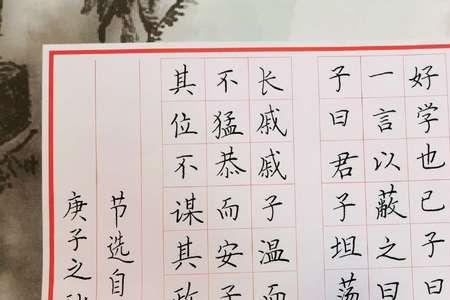 好学也已子曰
一言以蔽之曰
子曰君子坦荡
长戚戚子温而
不猛恭而安子
其位不谋其政
节选自
庚子之